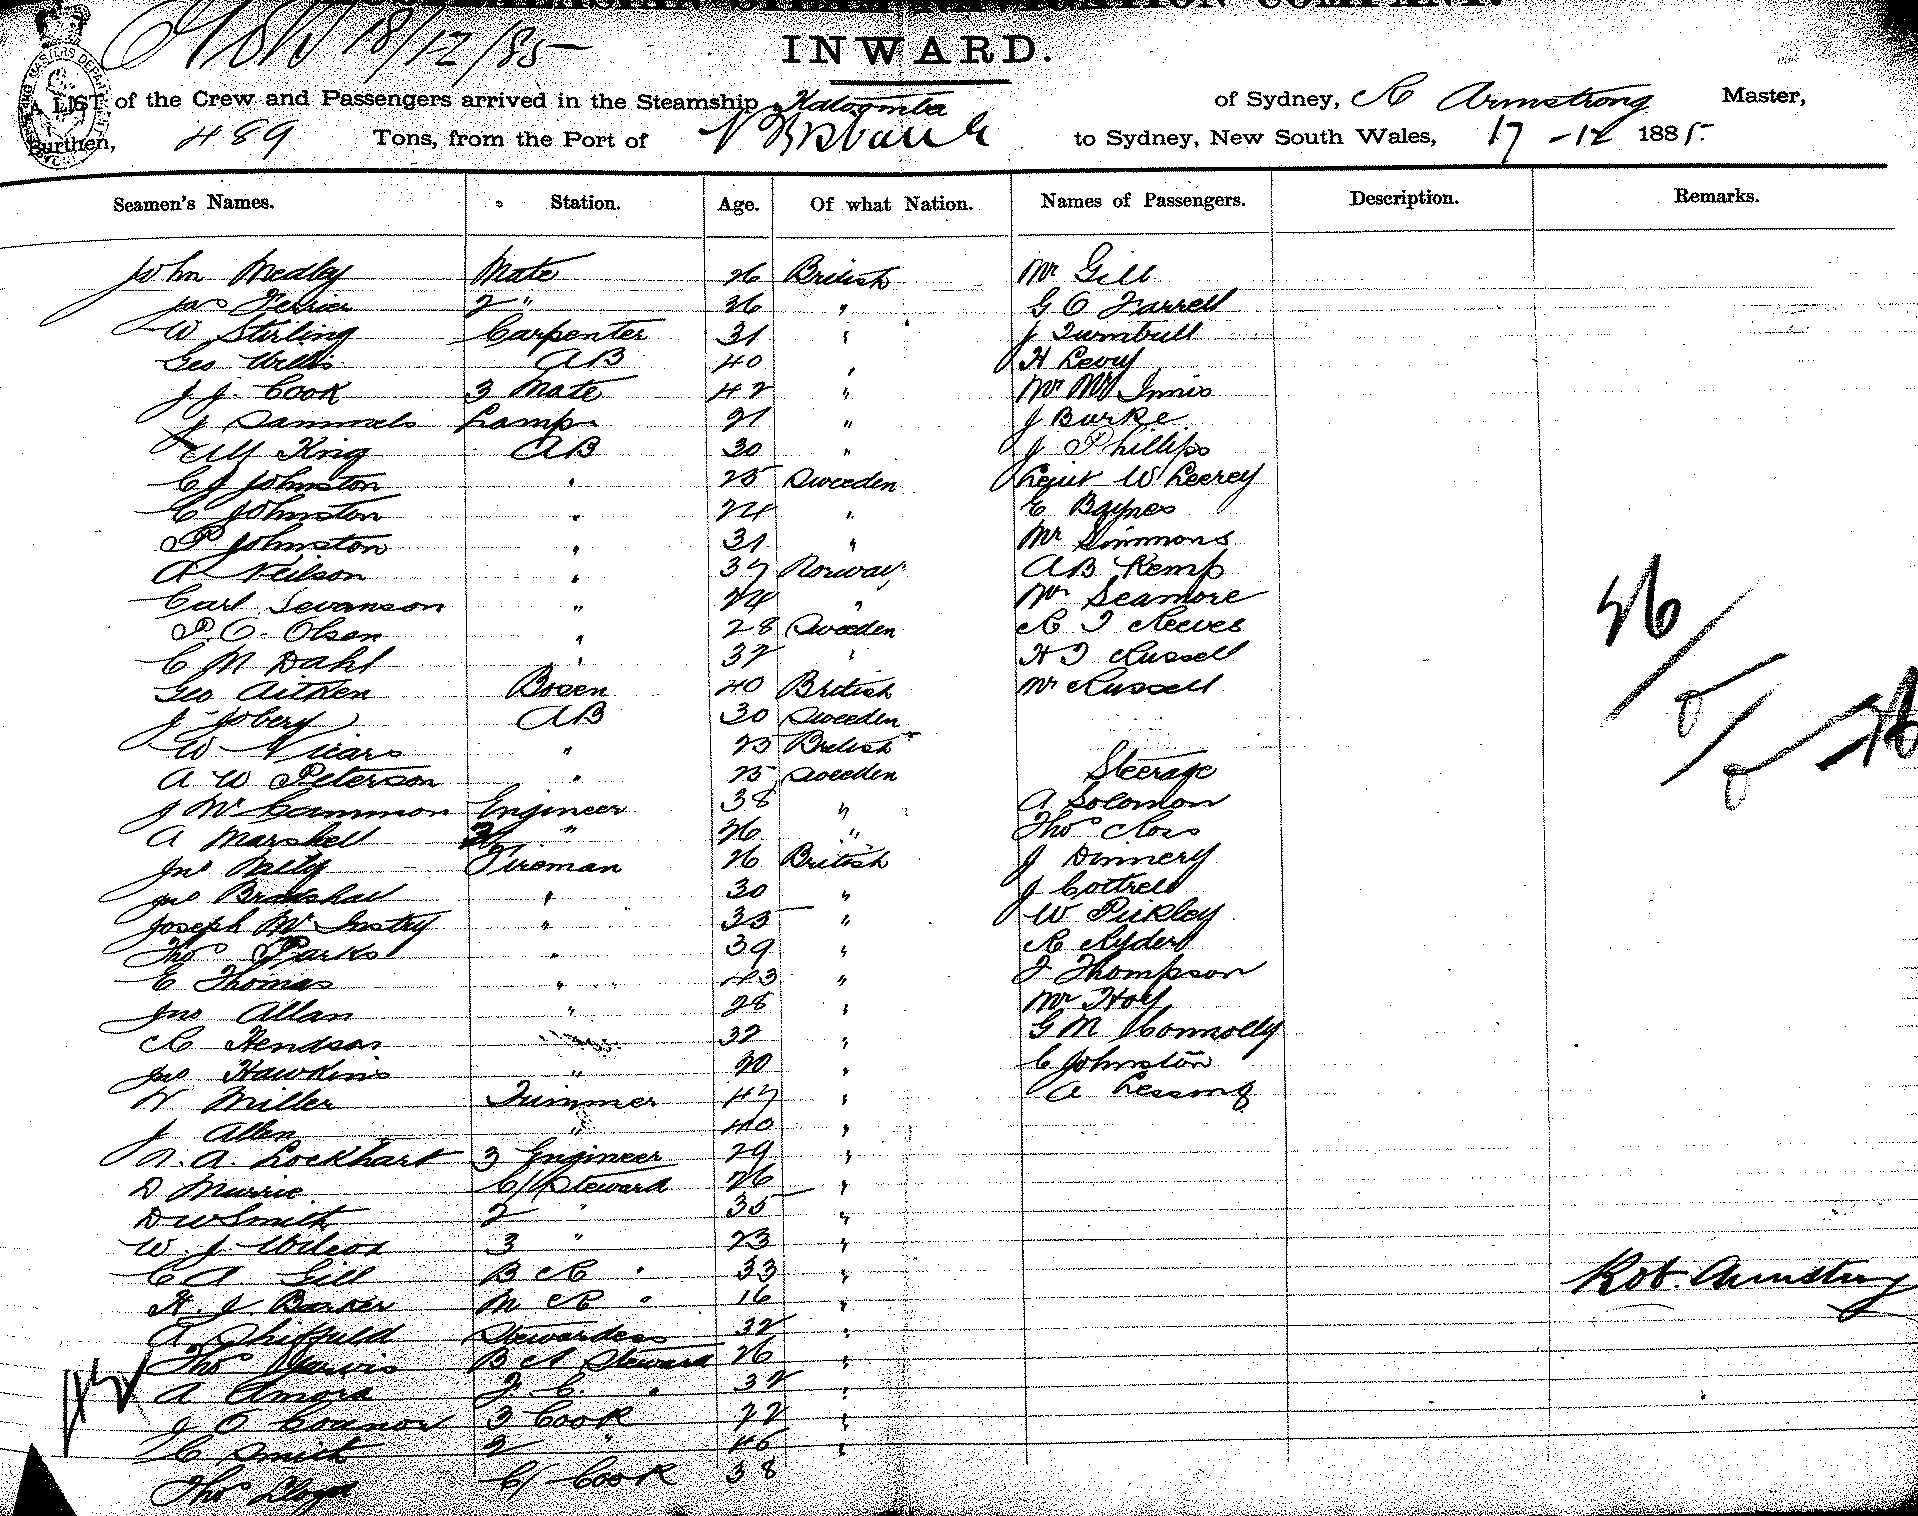 STEAM NAVIGATION COMPANY.
18/12/85
INWARD.
A LIST of the Crew and Passengers arrived in the Steamship Katoomba of Sydney, R Armstrong Master,
Burthen, 489 Tons, from the Port of Brisbane to Sydney, New South Wales, 17-12 1885.
Seamen's Names. Station. Age. Of what Nation. Names of Passengers. Description. Remarks.
John Medley Mate 26 British Mr Gill
Jas Ferrier 2 " 36 " G O Farrell
W Stirling Carpenter 31 " J Turnbull
Geo Willis AB 40 " H Levy
J J. Cook 3 Mate 42 " Mr Mc Innis
J Sammuels Lamps 21 " J Burke
King AB 30 " J Phillips
C J Johnston " 25 Sweeden Lieut W Leerey
C Johnston " 24 " E Baynes
P Johnston " 31 " Mr Simmons
A Neilson " 37 Norway AB Kemp
Carl Swanson " 24 " Mr Seamore
P. O. Olsen " 28 Sweeden R T Reeves
C M Dahl " 32 " H T Russell
Geo Aitken Bosen 40 British Mr Russell
J Jobery AB 30 Sweeden
W Vicars " 25 British
A W Peterson " 25 Sweeden Steerage
J Mc Cammon Engineer 38 " A Solomon
A Marshel 2 " 26 " Thos Ross
Jno Nelly Fireman 26 British J Dinnery
Jno Bradshaw " 30 " J Cottrell
Joseph Mc Instry " 35 " W Pickley
Thos Parks " 39 " R Ryder
E Thomas " 43 " F Thompson
Jno Allan " 28 " Mr Hoy
R Hendson " 32 " G M Connolly
Jno Hawkins " 20 " C Johnston
W Miller Trimmer 47 " A Lessing
J Allen " 40 "
A. Lockhart 3 Engineer 29 "
D Murrie C/ Steward 26 "
D W Smith 2 " 35 "
W. J. Wilcox 3 " 23 "
C A Gill B R " 33 "
H. J. Barker M R " 16 "
A Shiffield Stewardess 32 "
Thos Jarvis B R Steward 26 "
A Amora F. C. " 32 "
J O Connor 3 Cook 22 "
C Smith 2 " 46 "
Thos Lloyd C/ Cook 38
26/0/0 26
Rob. Armstrong